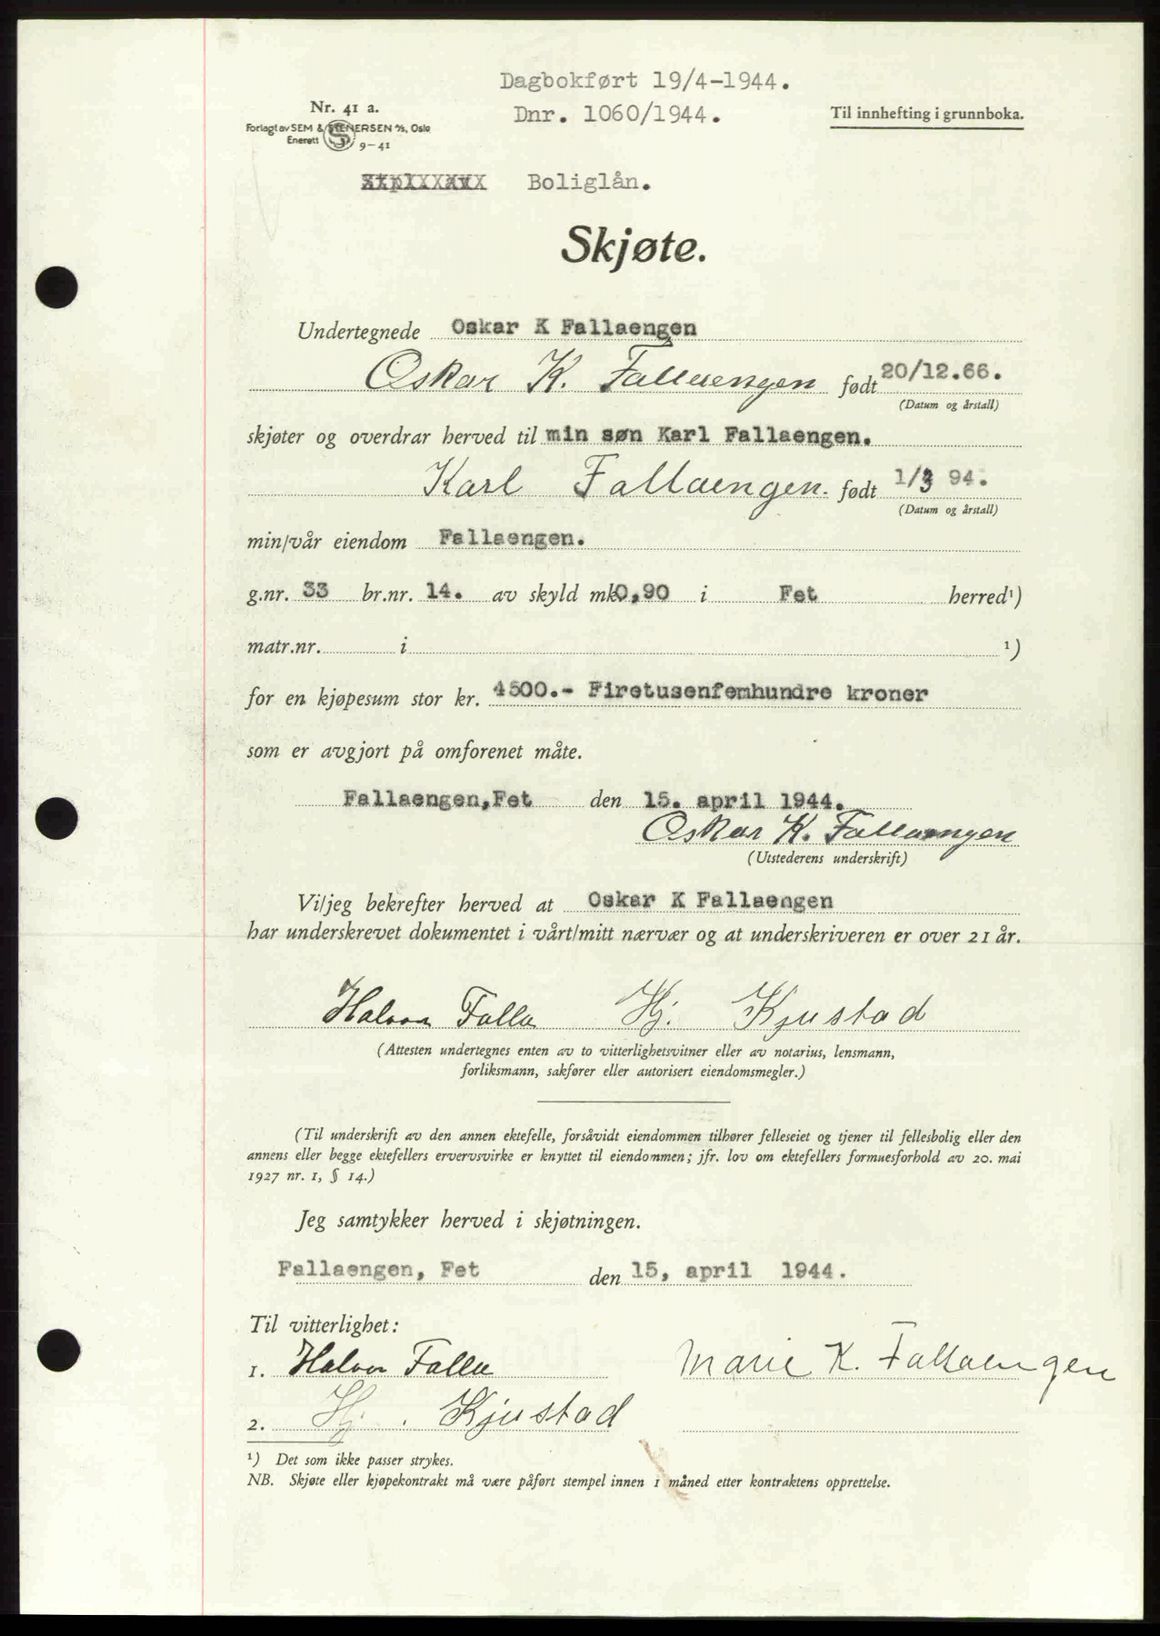 Dagbokført 19/4-1944.
Nr. 41 a.
Dnr. 1060/1944.
Til innhefting i grunnboka.
Forlagt av SEM & STENERSEN A/S, Oslo
Enerett 9-41
Boliglån.
Skjøte.
Undertegnede Oskar K Fallaengen
Oskar K. Fallaengen født 20/12.66.
(Datum og årstall)
skjøter og overdrar herved til min søn Karl Fallaengen.
Karl Fallaengen. født 1/3 94.
(Datum og årstall)
min/vår eiendom Fallaengen.
g.nr. 33 br.nr. 14. av skyld mk 0,90 i Fet herred¹)
matr.nr. i ¹)
for en kjøpesum stor kr. 4500.- Firetusenfemhundre kroner
som er avgjort på omforenet måte.
Fallaengen,Fet den 15. april 1944.
Oskar K. Fallaengen
(Utstederens underskrift)
Vi/jeg bekrefter herved at Oskar K Fallaengen
har underskrevet dokumentet i vårt/mitt nærvær og at underskriveren er over 21 år.
Halvor Falla Hj. Kjustad
(Attesten undertegnes enten av to vitterlighetsvitner eller av notarius, lensmann,
forliksmann, sakfører eller autorisert eiendomsmegler.)
(Til underskrift av den annen ektefelle, forsåvidt eiendommen tilhører felleseiet og tjener til fellesbolig eller den
annens eller begge ektefellers ervervsvirke er knyttet til eiendommen; jfr. lov om ektefellers formuesforhold av 20. mai
1927 nr. 1, § 14.)
Jeg samtykker herved i skjøtningen.
Fallaengen, Fet den 15, april 1944.
Til vitterlighet:
1. Halvor Falla Marie K. Fallaengen
2. Hj. Kjustad
¹) Det som ikke passer strykes.
NB. Skjøte eller kjøpekontrakt må være påført stempel innen 1 måned etter kontraktens opprettelse.